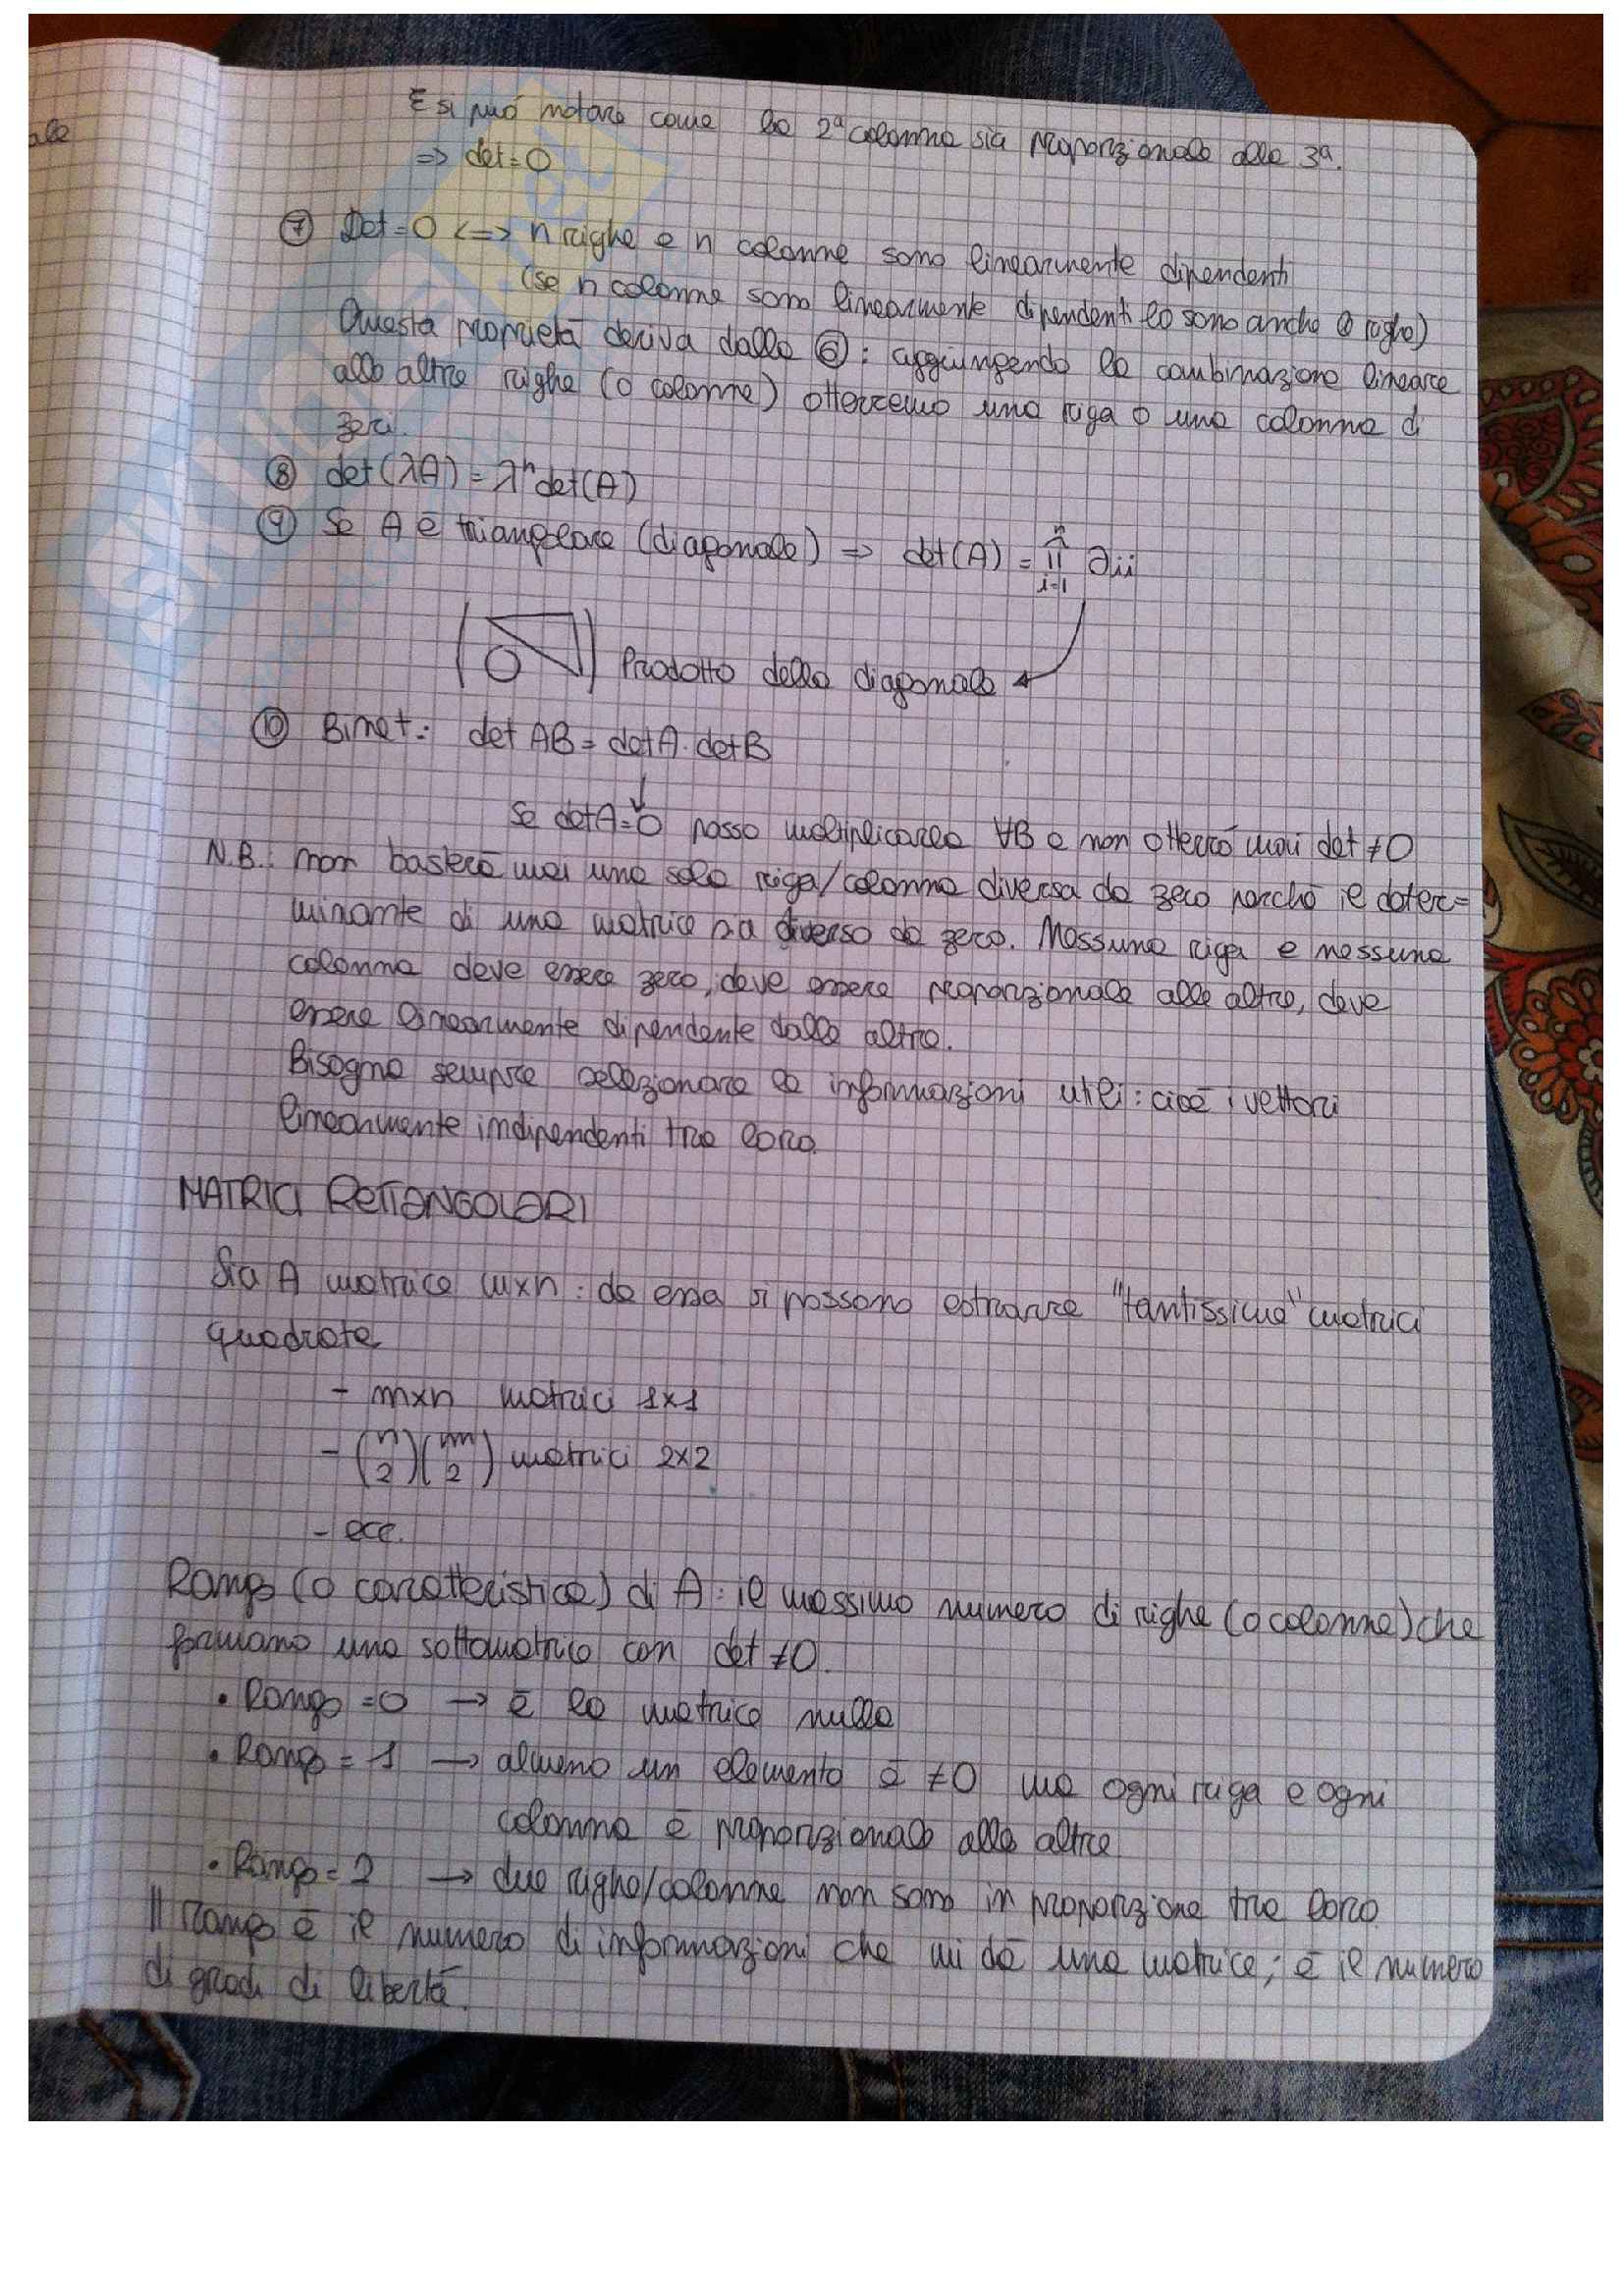 E si può notare come la 2ª colonna sia proporzionale alla 3ª.
=> det=0
⑦ Det=0 <=> n righe e n colonne sono linearmente dipendenti
(se n colonne sono linearmente dipendenti lo sono anche le righe)
Questa proprietà deriva dalla ⑥: aggiungendo la combinazione lineare
alle altre righe (o colonne) otterremo una riga o una colonna di
zeri.
⑧ det(λA) = λⁿdet(A)
⑨ Se A è triangolare (diagonale) => det(A) = ∏ⁿᵢ₌₁ aii
0 Prodotto della diagonale
⑩ Binet: det AB = detA · detB
Se detA=0 posso moltiplicarla ∀B e non otterrò mai det ≠0
N.B.: non basterà mai una sola riga/colonna diversa da zero perché il deter=
minante di una matrice sia diverso da zero. Nessuna riga e nessuna
colonna deve essere zero, deve essere proporzionale alle altre, deve
essere linearmente dipendente dalle altre.
Bisogna sempre selezionare le informazioni utili: cioè i vettori
linearmente indipendenti tra loro.
MATRICI RETTANGOLARI
Sia A matrice mxn: da essa si possono estrarre "tantissime" matrici
quadrate
- mxn matrici 1x1
- (n 2)(m 2) matrici 2x2
- ecc.
Rango (o caratteristica) di A: il massimo numero di righe (o colonne) che
formano una sottomatrice con det ≠0.
• Rango =0 → è la matrice nulla
• Rango = 1 → almeno un elemento è ≠0 ma ogni riga e ogni
colonna è proporzionale alle altre
• Rango = 2 → due righe/colonne non sono in proporzione tra loro
Il rango è il numero di informazioni che mi dà una matrice; è il numero
di gradi di libertà.